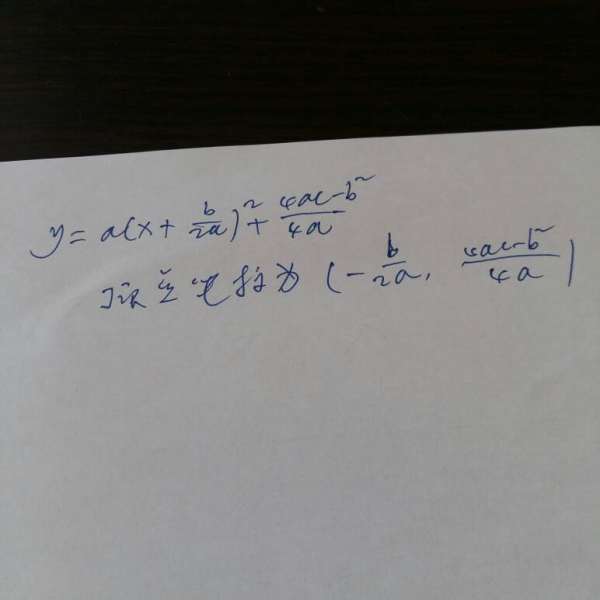 y = a(x + b/2a)² + (4ac-b²)/4a
顶点坐标为 (-b/2a, (4ac-b²)/4a)